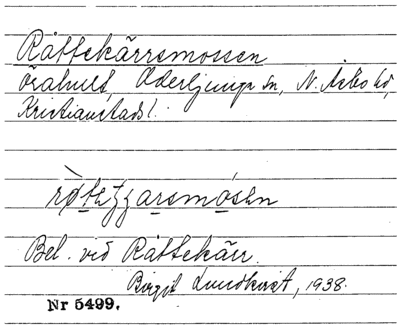 Råttekärrsmossen
Örahult, Oderljunga sn, N. Åsbo hd,
Kristianstads l.
Bel. vid Råttekärr.
Birgit Lundkvist, 1938.
Nr 5499.